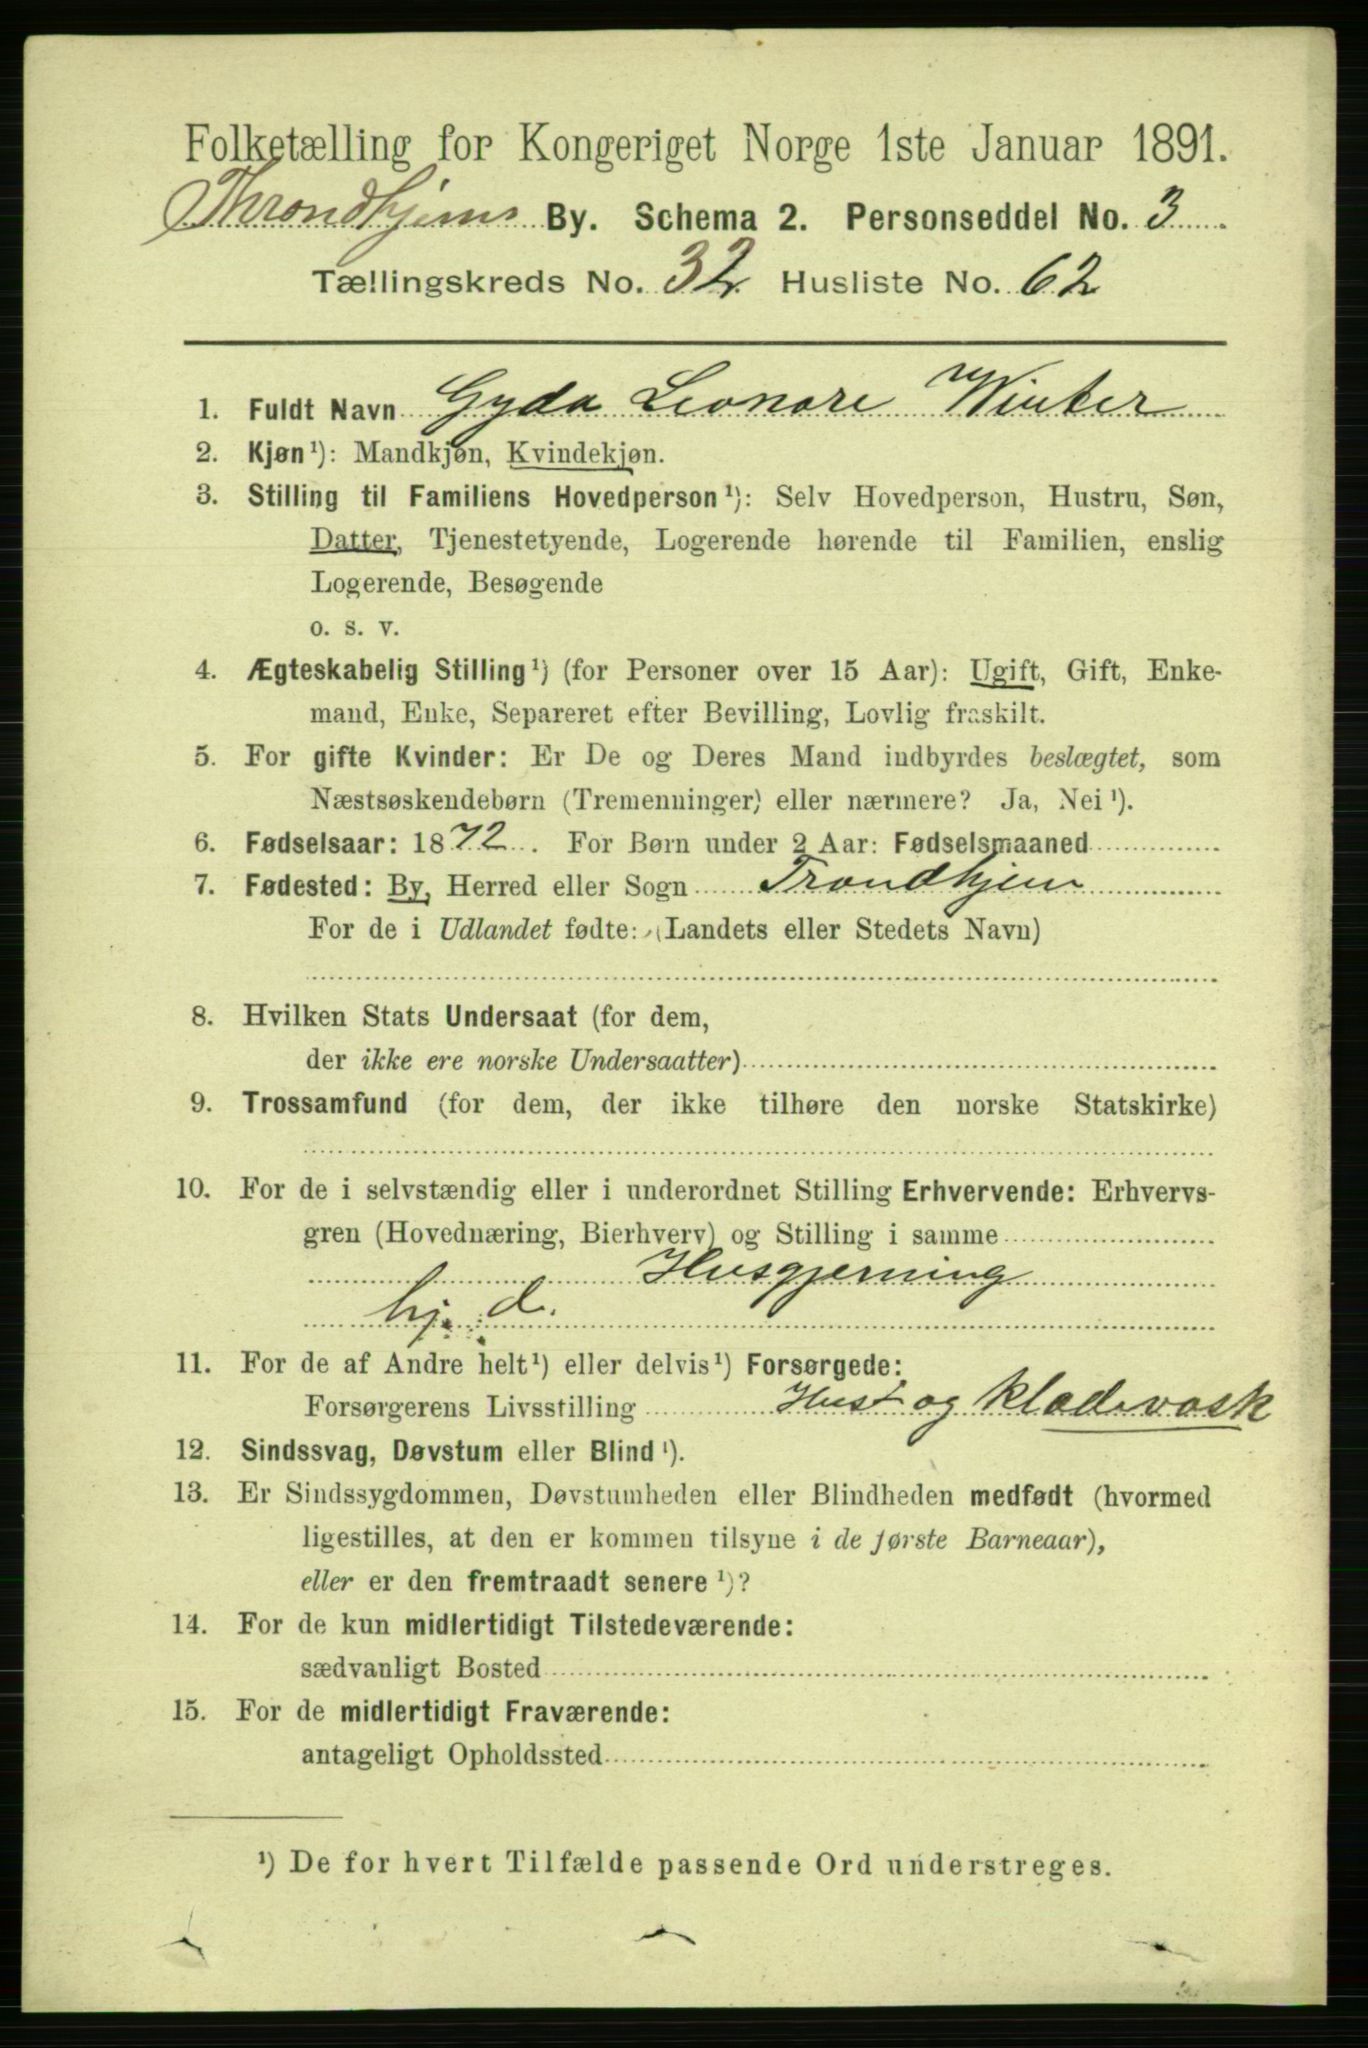 Folketælling for Kongeriget Norge 1ste Januar 1891.
Throndhjems By. Schema 2. Personseddel No. 3
Tællingskreds No. 32 Husliste No. 62
1. Fuldt Navn Gyda Leonore Winter
2. Kjøn¹): Mandkjøn, Kvindekjøn.
3. Stilling til Familiens Hovedperson¹): Selv Hovedperson, Hustru, Søn,
Datter, Tjenestetyende, Logerende hørende til Familien, enslig
Logerende, Besøgende
o. s. v.
4. Ægteskabelig Stilling¹) (for Personer over 15 Aar): Ugift, Gift, Enke-
mand, Enke, Separeret efter Bevilling, Lovlig fraskilt.
5. For gifte Kvinder: Er De og Deres Mand indbyrdes beslægtet, som
Næstsøskendebørn (Tremenninger) eller nærmere? Ja, Nei¹).
6. Fødselsaar: 1872. For Børn under 2 Aar: Fødselsmaaned
7. Fødested: By, Herred eller Sogn Trondhjem
For de i Udlandet fødte: (Landets eller Stedets Navn)
8. Hvilken Stats Undersaat (for dem,
der ikke ere norske Undersaatter)
9. Trossamfund (for dem, der ikke tilhøre den norske Statskirke)
10. For de i selvstændig eller i underordnet Stilling Erhvervende: Erhvervs-
gren (Hovednæring, Bierhverv) og Stilling i samme
Husgjerning
hj. d.
11. For de af Andre helt¹) eller delvis¹) Forsørgede:
Forsørgerens Livsstilling Hust og Kladevask
12. Sindssvag, Døvstum eller Blind¹).
13. Er Sindssygdommen, Døvstumheden eller Blindheden medfødt (hvormed
ligestilles, at den er kommen tilsyne i de første Barneaar),
eller er den fremtraadt senere¹)?
14. For de kun midlertidigt Tilstedeværende:
sædvanligt Bosted
15. For de midlertidigt Fraværende:
antageligt Opholdssted
¹) De for hvert Tilfælde passende Ord understreges.